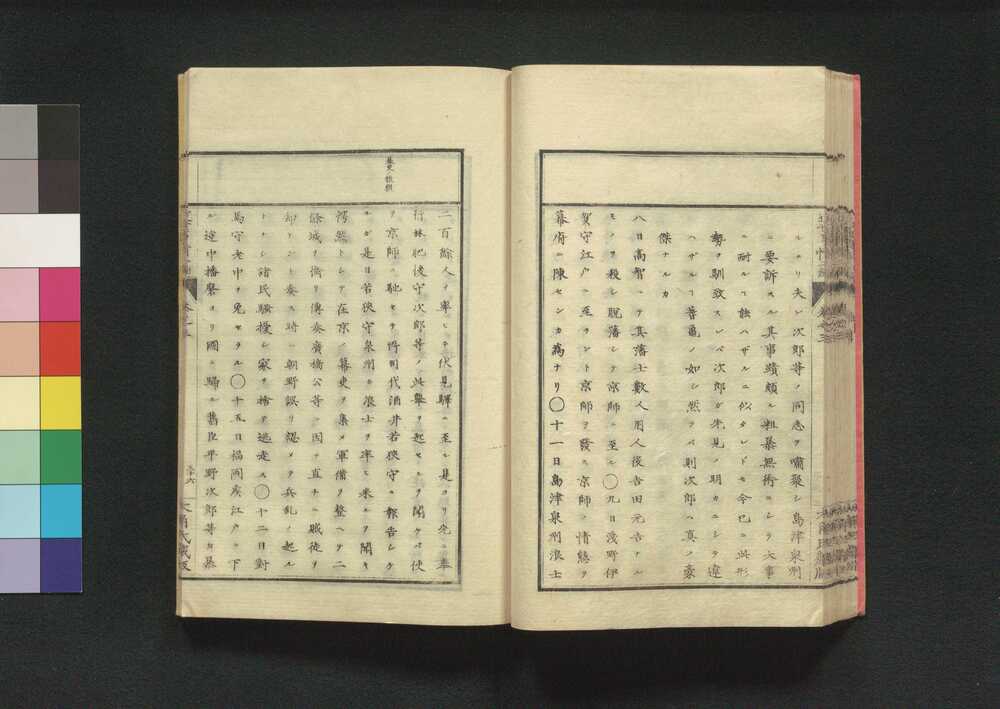 ルニリ夫レ次郎等ノ同志ヲ嘯聚シ島津泉州
ニ要訴スル其事蹟頗ル粗暴無術ニシラ大事
ニ耐ルヿ能ハザルニ似タレドモ今已ニ此形
勢ヲ馴致スレバ次郎ガ先見ノ明カニシテ違
ハザルヿ蓍龜ノ如シ然ラバ則次郎ハ真ノ豪
傑ナルカ
八日高智ニヲ其藩士數人用人後吉田元吉ナル
モノヲ殺シ脱藩シテ京師ニ至ル〇九日浅野伊
賀守江戸ニ至ラント京師ヲ發ス京師ノ情態ヲ
幕府ニ陳セシカ為ナリ〇十一日島津泉州浪士
二百餘人ヲ率ヒテ伏見驛ニ至ル是ヨリ先ニ奉
行林肥後守次郎等ノ此擧ヲ起セシヲ聞クヤ使
ヲ京師ニ馳セテ所司代酒井若狭守ニ報告シケ
ルガ是日若狭守泉州ガ浪士ヲ率ヒ来ルヲ聞キ
愕然トシテ在京ノ幕吏ヲ集メ軍備ヲ整ヘテ二
條城ヲ備リ傳奏廣橋公等ニ因テ直チニ賊徒ヲ
却ケント奏ス時ニ朝野誤リ認メテ兵乱ノ起ル
トナシ諸民騒擾シ家ヲ捨テ逃走ス〇十二日對
馬守老中ヲ免セラル〇十五日福岡矦江戸ニ下
ル途中播磨ヨリ國ニ歸ル舊臣平野次郎等カ暴
巻之三